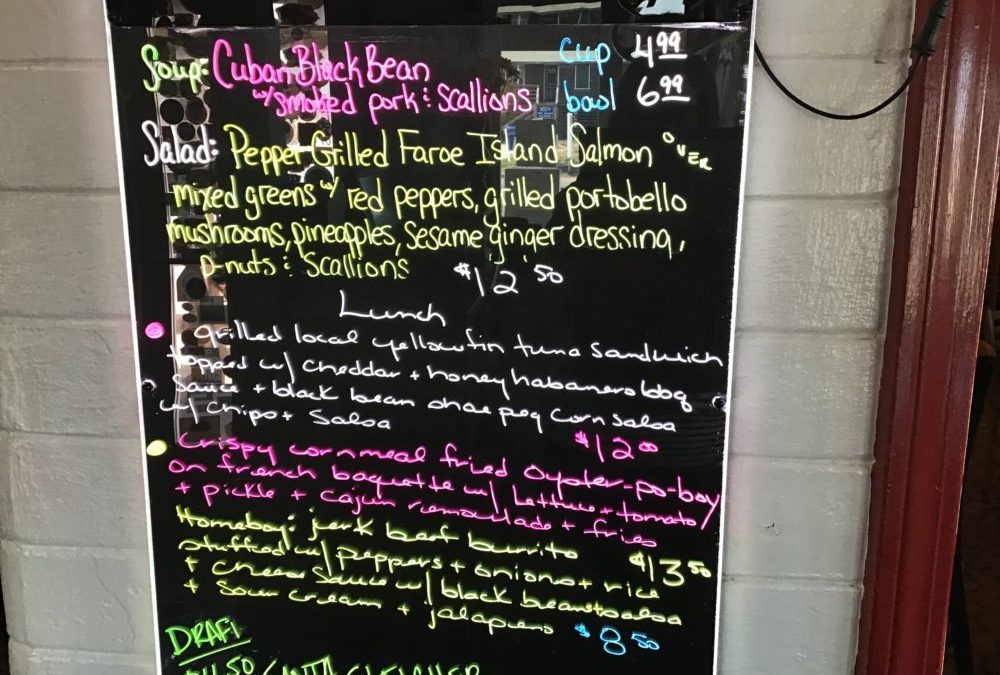 Soup: Cuban Black Bean cup 4.99
w/ smoked pork & Scallions bowl 6.99
Salad: Pepper Grilled Faroe Island Salmon OVER
mixed greens w/ red peppers, grilled portobello
mushrooms, pineapples, Sesame ginger dressing,
p-nuts & Scallions $12.50
Lunch
grilled local yellowfin tuna Sandwich
topped w/ cheddar + honey habanero bbq
Sauce + black bean shoe peg corn salsa
w/ chips + Salsa $12.00
Crispy cornmeal fried Oyster-po-boy
on french baguette w/ lettuce + tomato/
+ pickle + cajun remoulade + fries
Homeboy: jerk beef burrito $13.50
stuffed w/ peppers + onions + rice
+ cheese Sauce w/ black beans + salsa
+ Sour cream + jalapeno $8.50
DRAFT